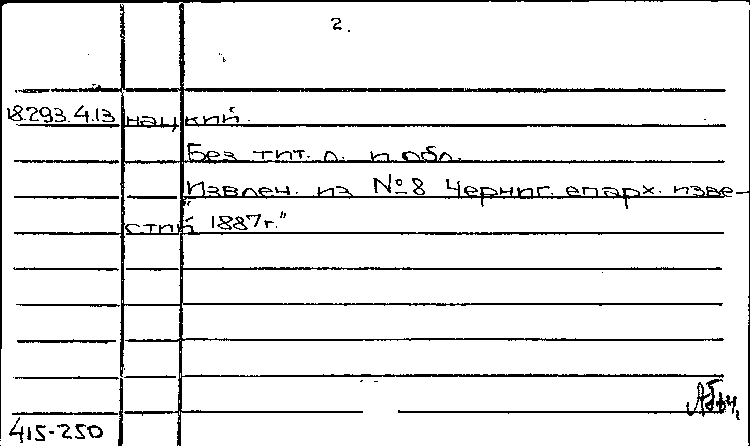 2.
18.293.4.13 нацкий.
Без тит. л. и обл.
Извлеч. из "№8 Черниг. епарх. изве-
стий 1887г."
415-250